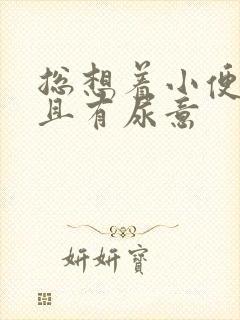 总想着小便
且有尿意
妍妍宝